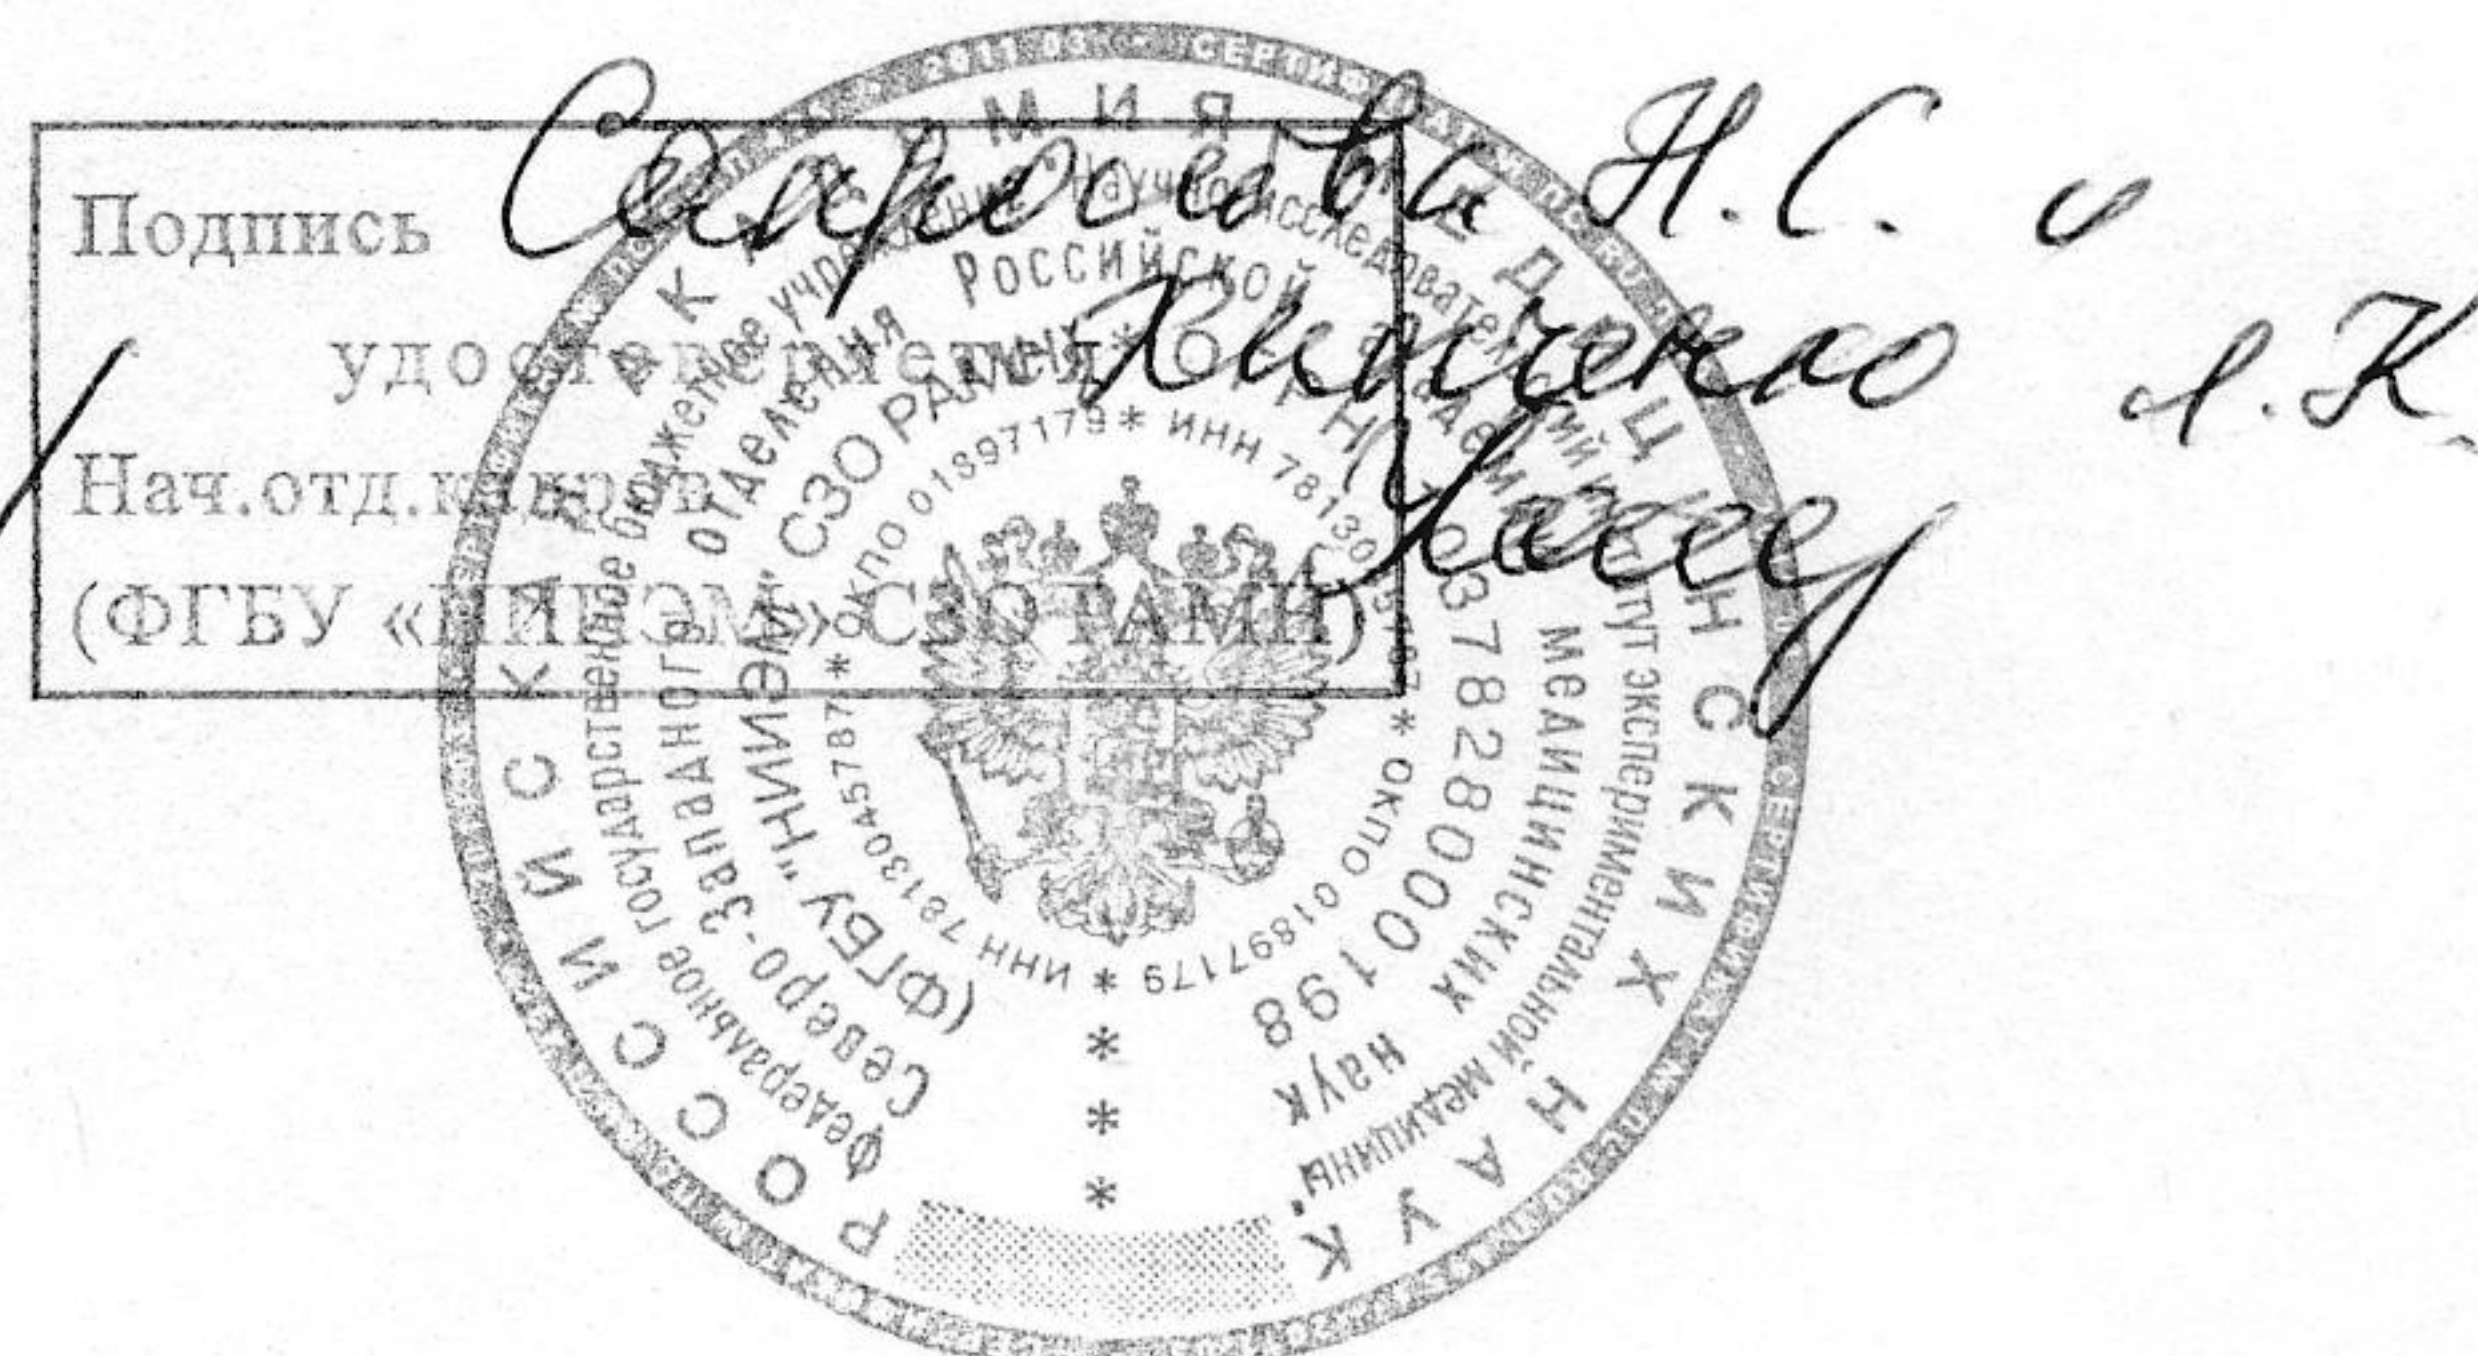 Подпись Сапронова Н.С. и
удостоверяется Хниченко Л.К.
Нач.отд.кадров
(ФГБУ «НИИЭМ» СЗО РАМН)
РОССИЙСКАЯ АКАДЕМИЯ МЕДИЦИНСКИХ НАУК
Федеральное государственное бюджетное учреждение "Научно-исследовательский институт экспериментальной медицины"
Северо-Западного отделения Российской академии медицинских наук
(ФГБУ "НИИЭМ" СЗО РАМН) * ОГРН 1037828000198
* ИНН 7813045787 * ОКПО 01897179 * ИНН 7813045787 * ОКПО 01897179
* * *